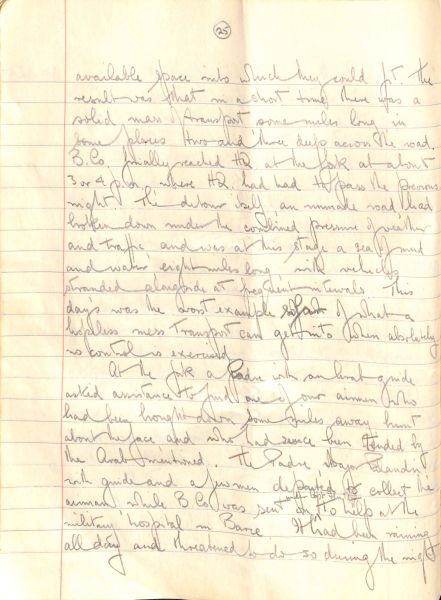 25
available space into which they could fit. The
result was that in a short time there was a
solid mass of transport some miles long in
some places two and three deep across the road.
B.Co. finally reached HQ at the fork at about
3 or 4 p.m. where HQ. had had to pass the previous
night. The detour itself, an unmade road, had
broken down under the combined pressure of weather
and traffic and was at this stage a sea of mud
and water eight miles long with vehicles
stranded alongside at frequent intervals. This
day's was the worst example so far of what a
hopeless mess transport can get into when absolutely
no control is exercised.
At the fork a Padre with an Arab guide
asked assistance to find one of our airmen who
had been brought down some miles away, burnt
about the face and who had since been tended by
the Arab mentioned. The Padre, Major
with guide and a few men departed to collect the
airman while B Co was sent on to help at the
military hospital in Barce. It had been raining
all day and threatened to do so during the night